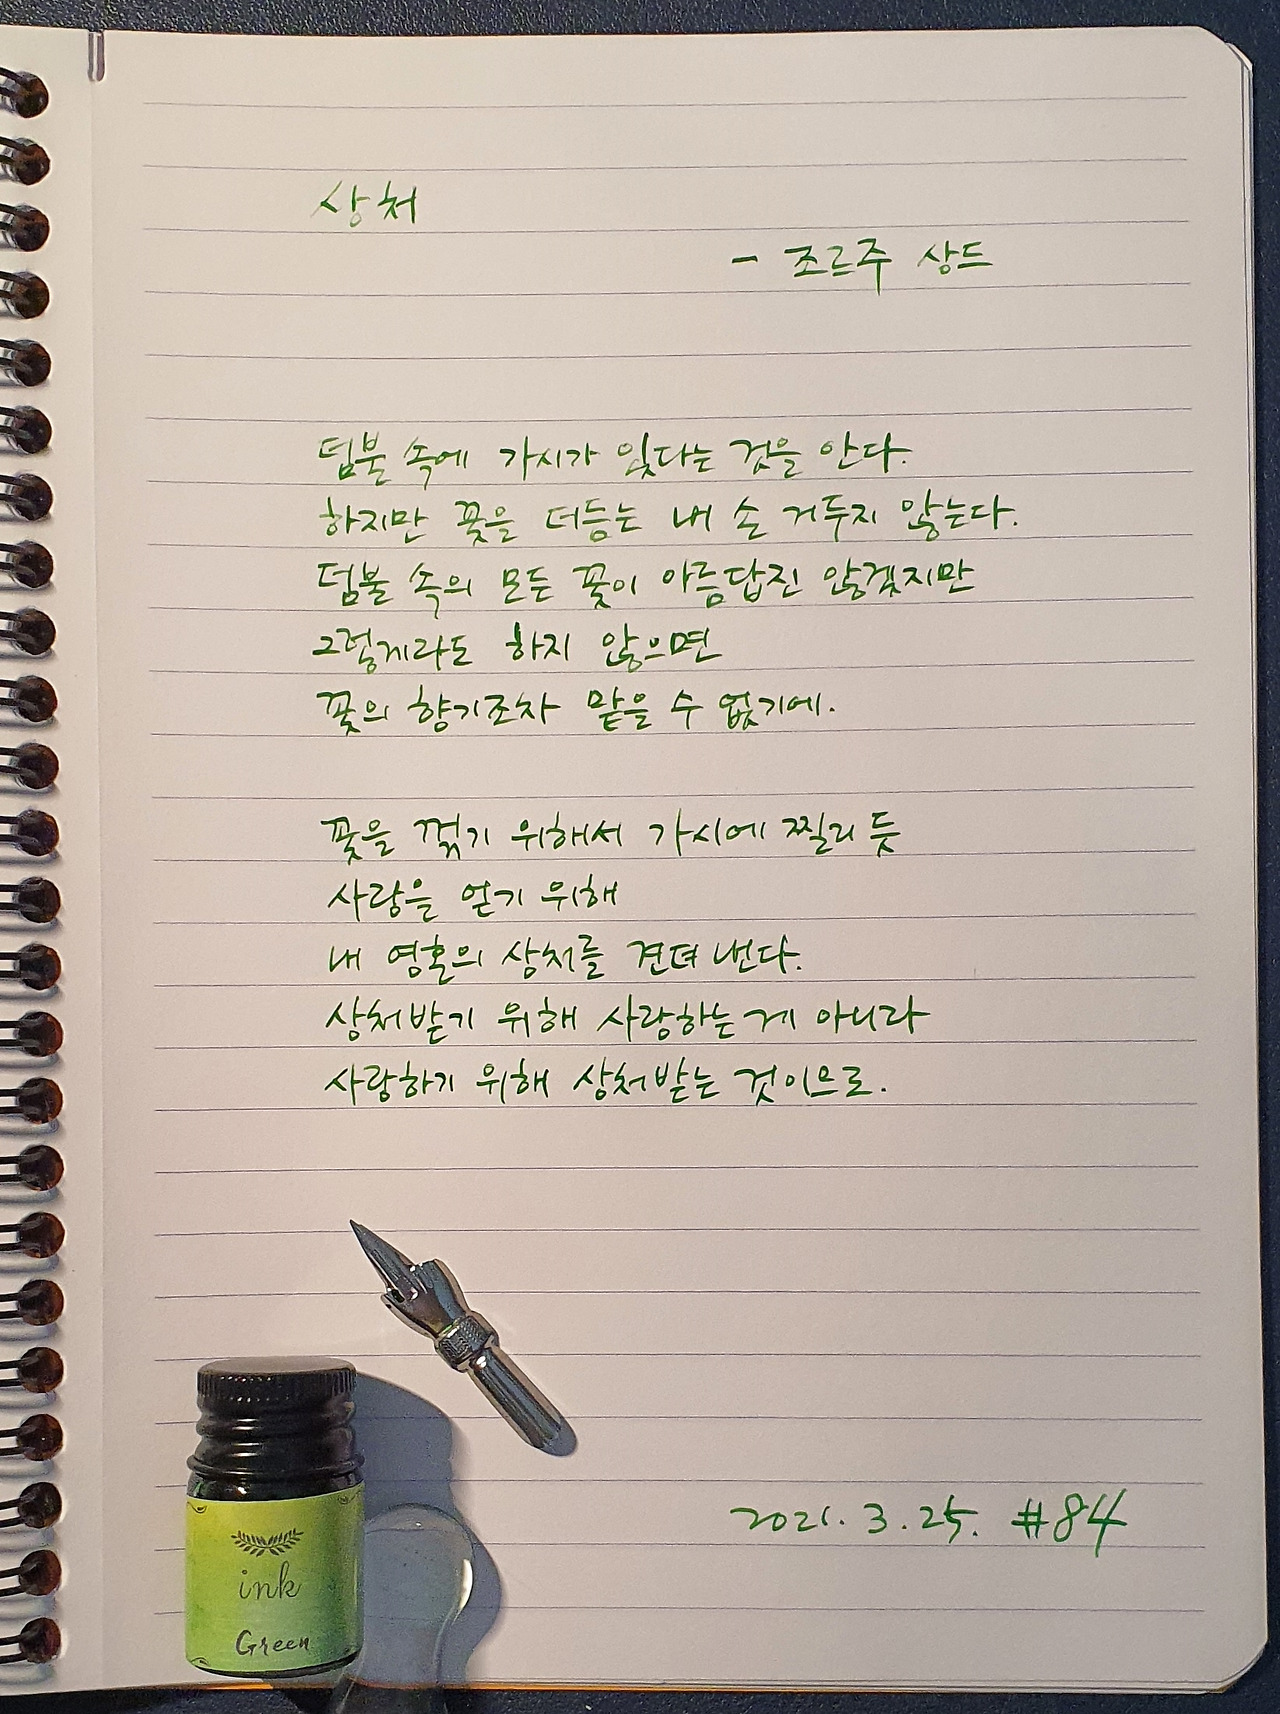 상처
- 조르주 상드
덤불 속에 가시가 있다는 것을 안다.
하지만 꽃을 더듬는 내 손 거두지 않는다.
덤불 속의 모든 꽃이 아름답진 않겠지만
그렇게라도 하지 않으면
꽃의 향기조차 맡을 수 없기에.
꽃을 꺾기 위해서 가시에 찔리듯
사랑을 얻기 위해
내 영혼의 상처를 견뎌 낸다.
상처받기 위해 사랑하는 게 아니라
사랑하기 위해 상처받는 것이므로.
2021. 3. 25. #84
ink
Green